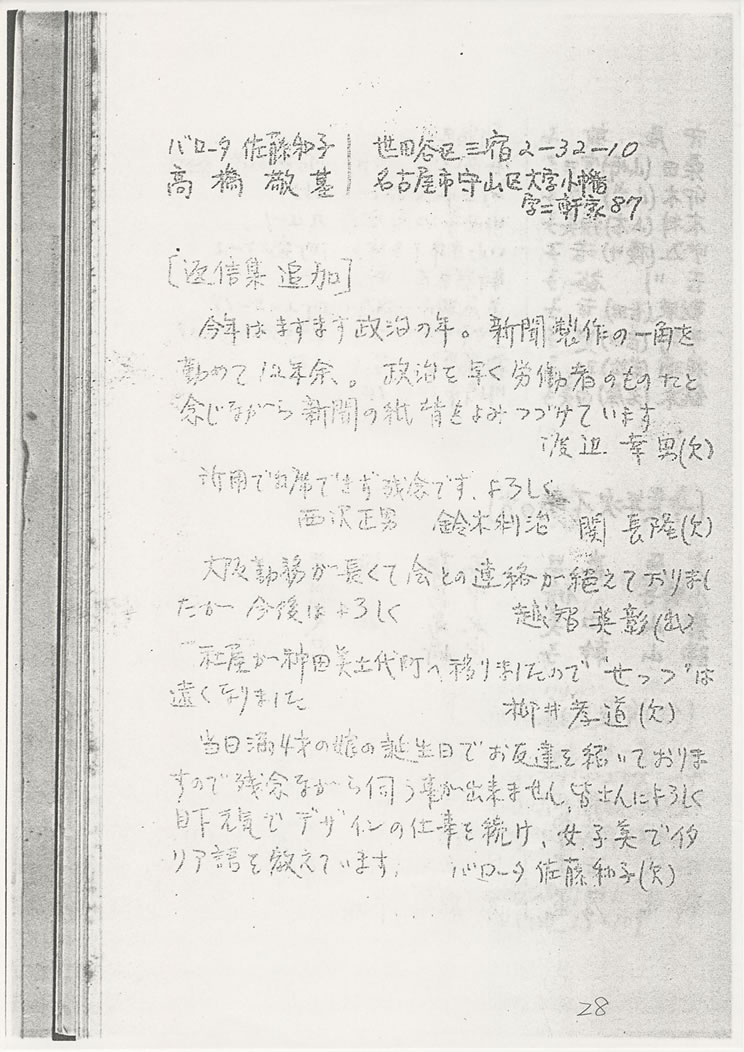 バロータ 佐藤和子 世田谷区三宿2-32-10
高橋敬基 名古屋市守山区大字小幡
字二軒家87
[返信集 追加]
今年はますます政治の年。新聞製作の一角を
勤めて12年余。政治を早く労働者のものだと
念じながら新聞の紙背をよみつづけています
渡辺幸男(欠)
所用で出席できず残念です、よろしく
西沢正男 鈴木利治 関長隆(欠)
大阪勤務が長くて会との連絡が絶えておりまし
たが今後はよろしく 越智英彰(出)
社屋が神田美土代町へ移りましたので"せっつ"は
遠くなりました 柳井孝道(欠)
当日満4才の娘の誕生日でお友達を招いておりま
すので残念ながら伺う事が出来ません。皆さんによろしく
目下元気でデザインの仕事を続け、女子美でイタ
リア語を教えています。 バロータ佐藤和子(欠)
28